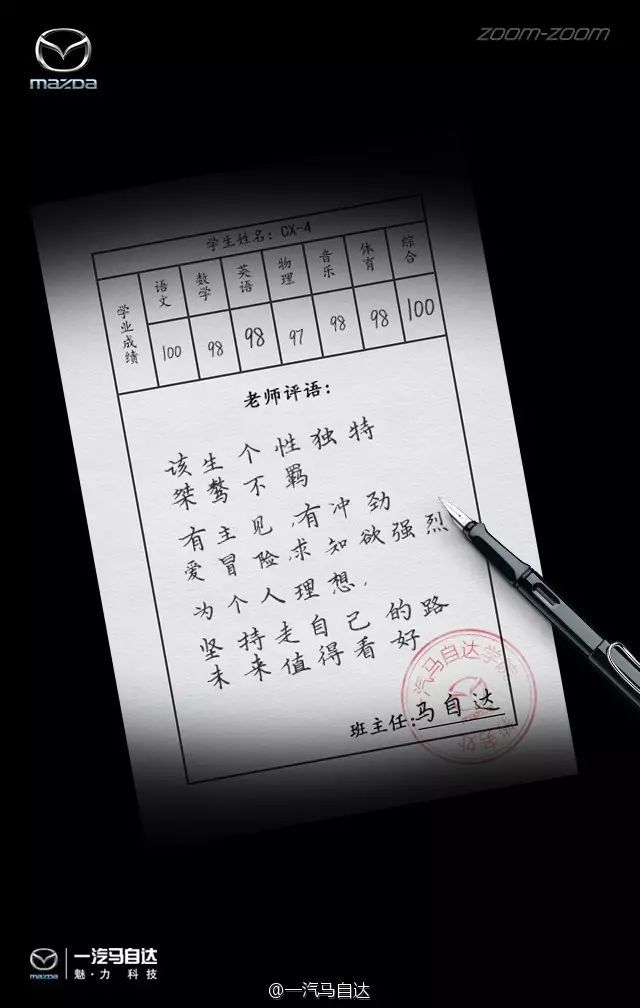 zoom-zoom
mazda
学生姓名：CX-4
学业成绩
语文 数学 英语 物理 音乐 体育 综合
100 98 98 97 98 98 100
老师评语：
该生个性独特
桀骜不羁
有主见，有冲劲
爱冒险，求知欲强烈
为个人理想，
坚持走自己的路
未来值得看好
一汽马自达学院
班主任：马自达
mazda
一汽马自达
魅·力 科技
@一汽马自达